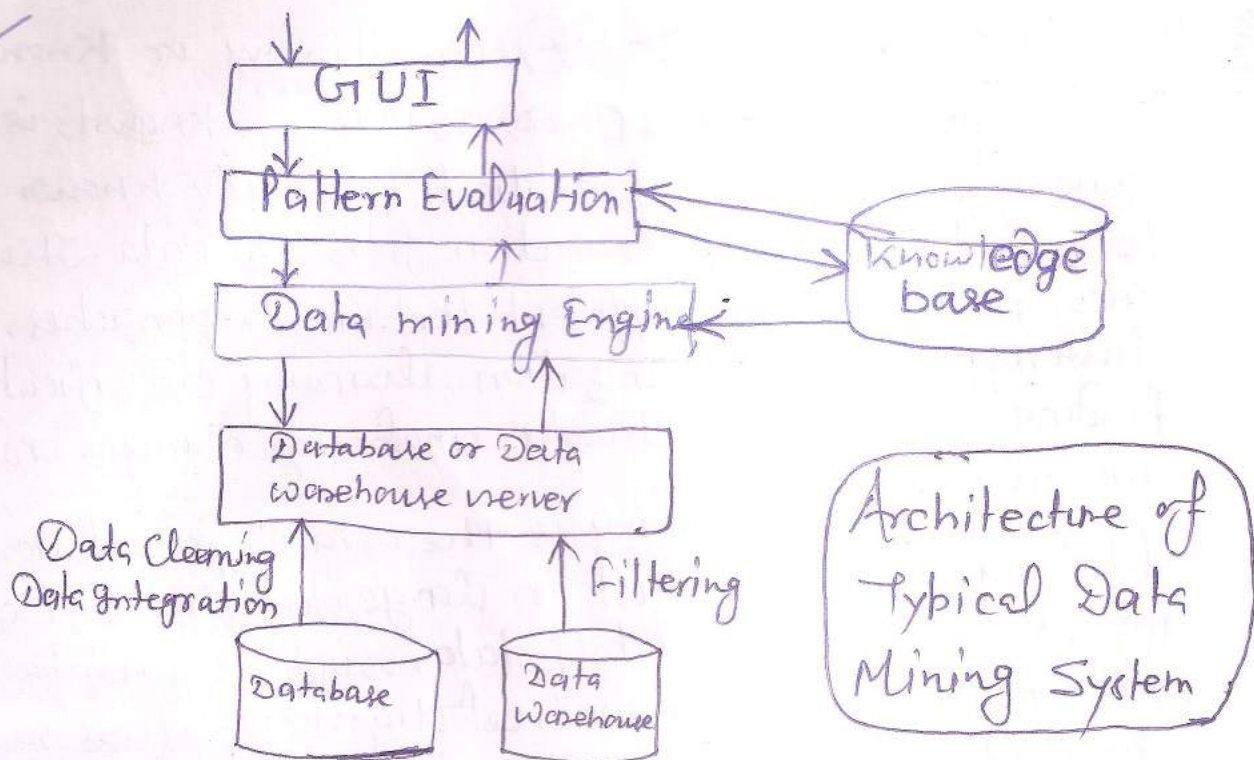 GUI
Pattern Evaluation
Data mining Engine
Knowledge
base
Database or Data
Warehouse server
Data Cleaning
Data Integration
Filtering
Database
Data
Warehouse
Architecture of
Typical Data
Mining System